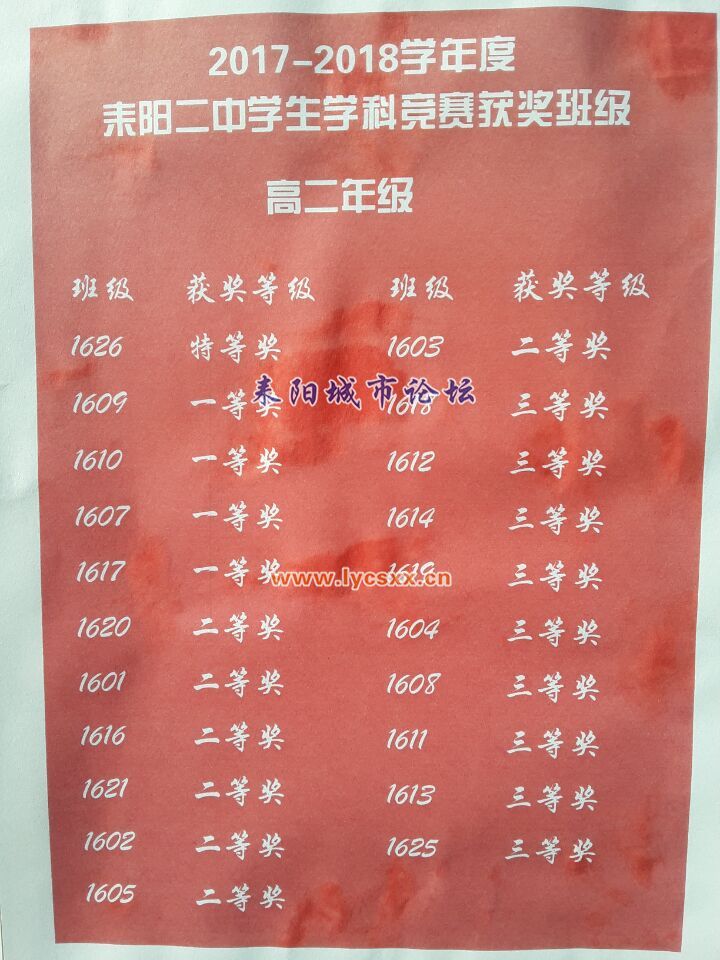 2017-2018学年度
耒阳二中学生学科竞赛获奖班级
高二年级
班级 获奖等级 班级 获奖等级
1626 特等奖 1603 二等奖
1609 一等奖 1618 三等奖
耒阳城市论坛
1610 一等奖 1612 三等奖
1607 一等奖 1614 三等奖
1617 一等奖 1619 三等奖
www.lycsxx.cn
1620 二等奖 1604 三等奖
1601 二等奖 1608 三等奖
1616 二等奖 1611 三等奖
1621 二等奖 1613 三等奖
1602 二等奖 1625 三等奖
1605 二等奖